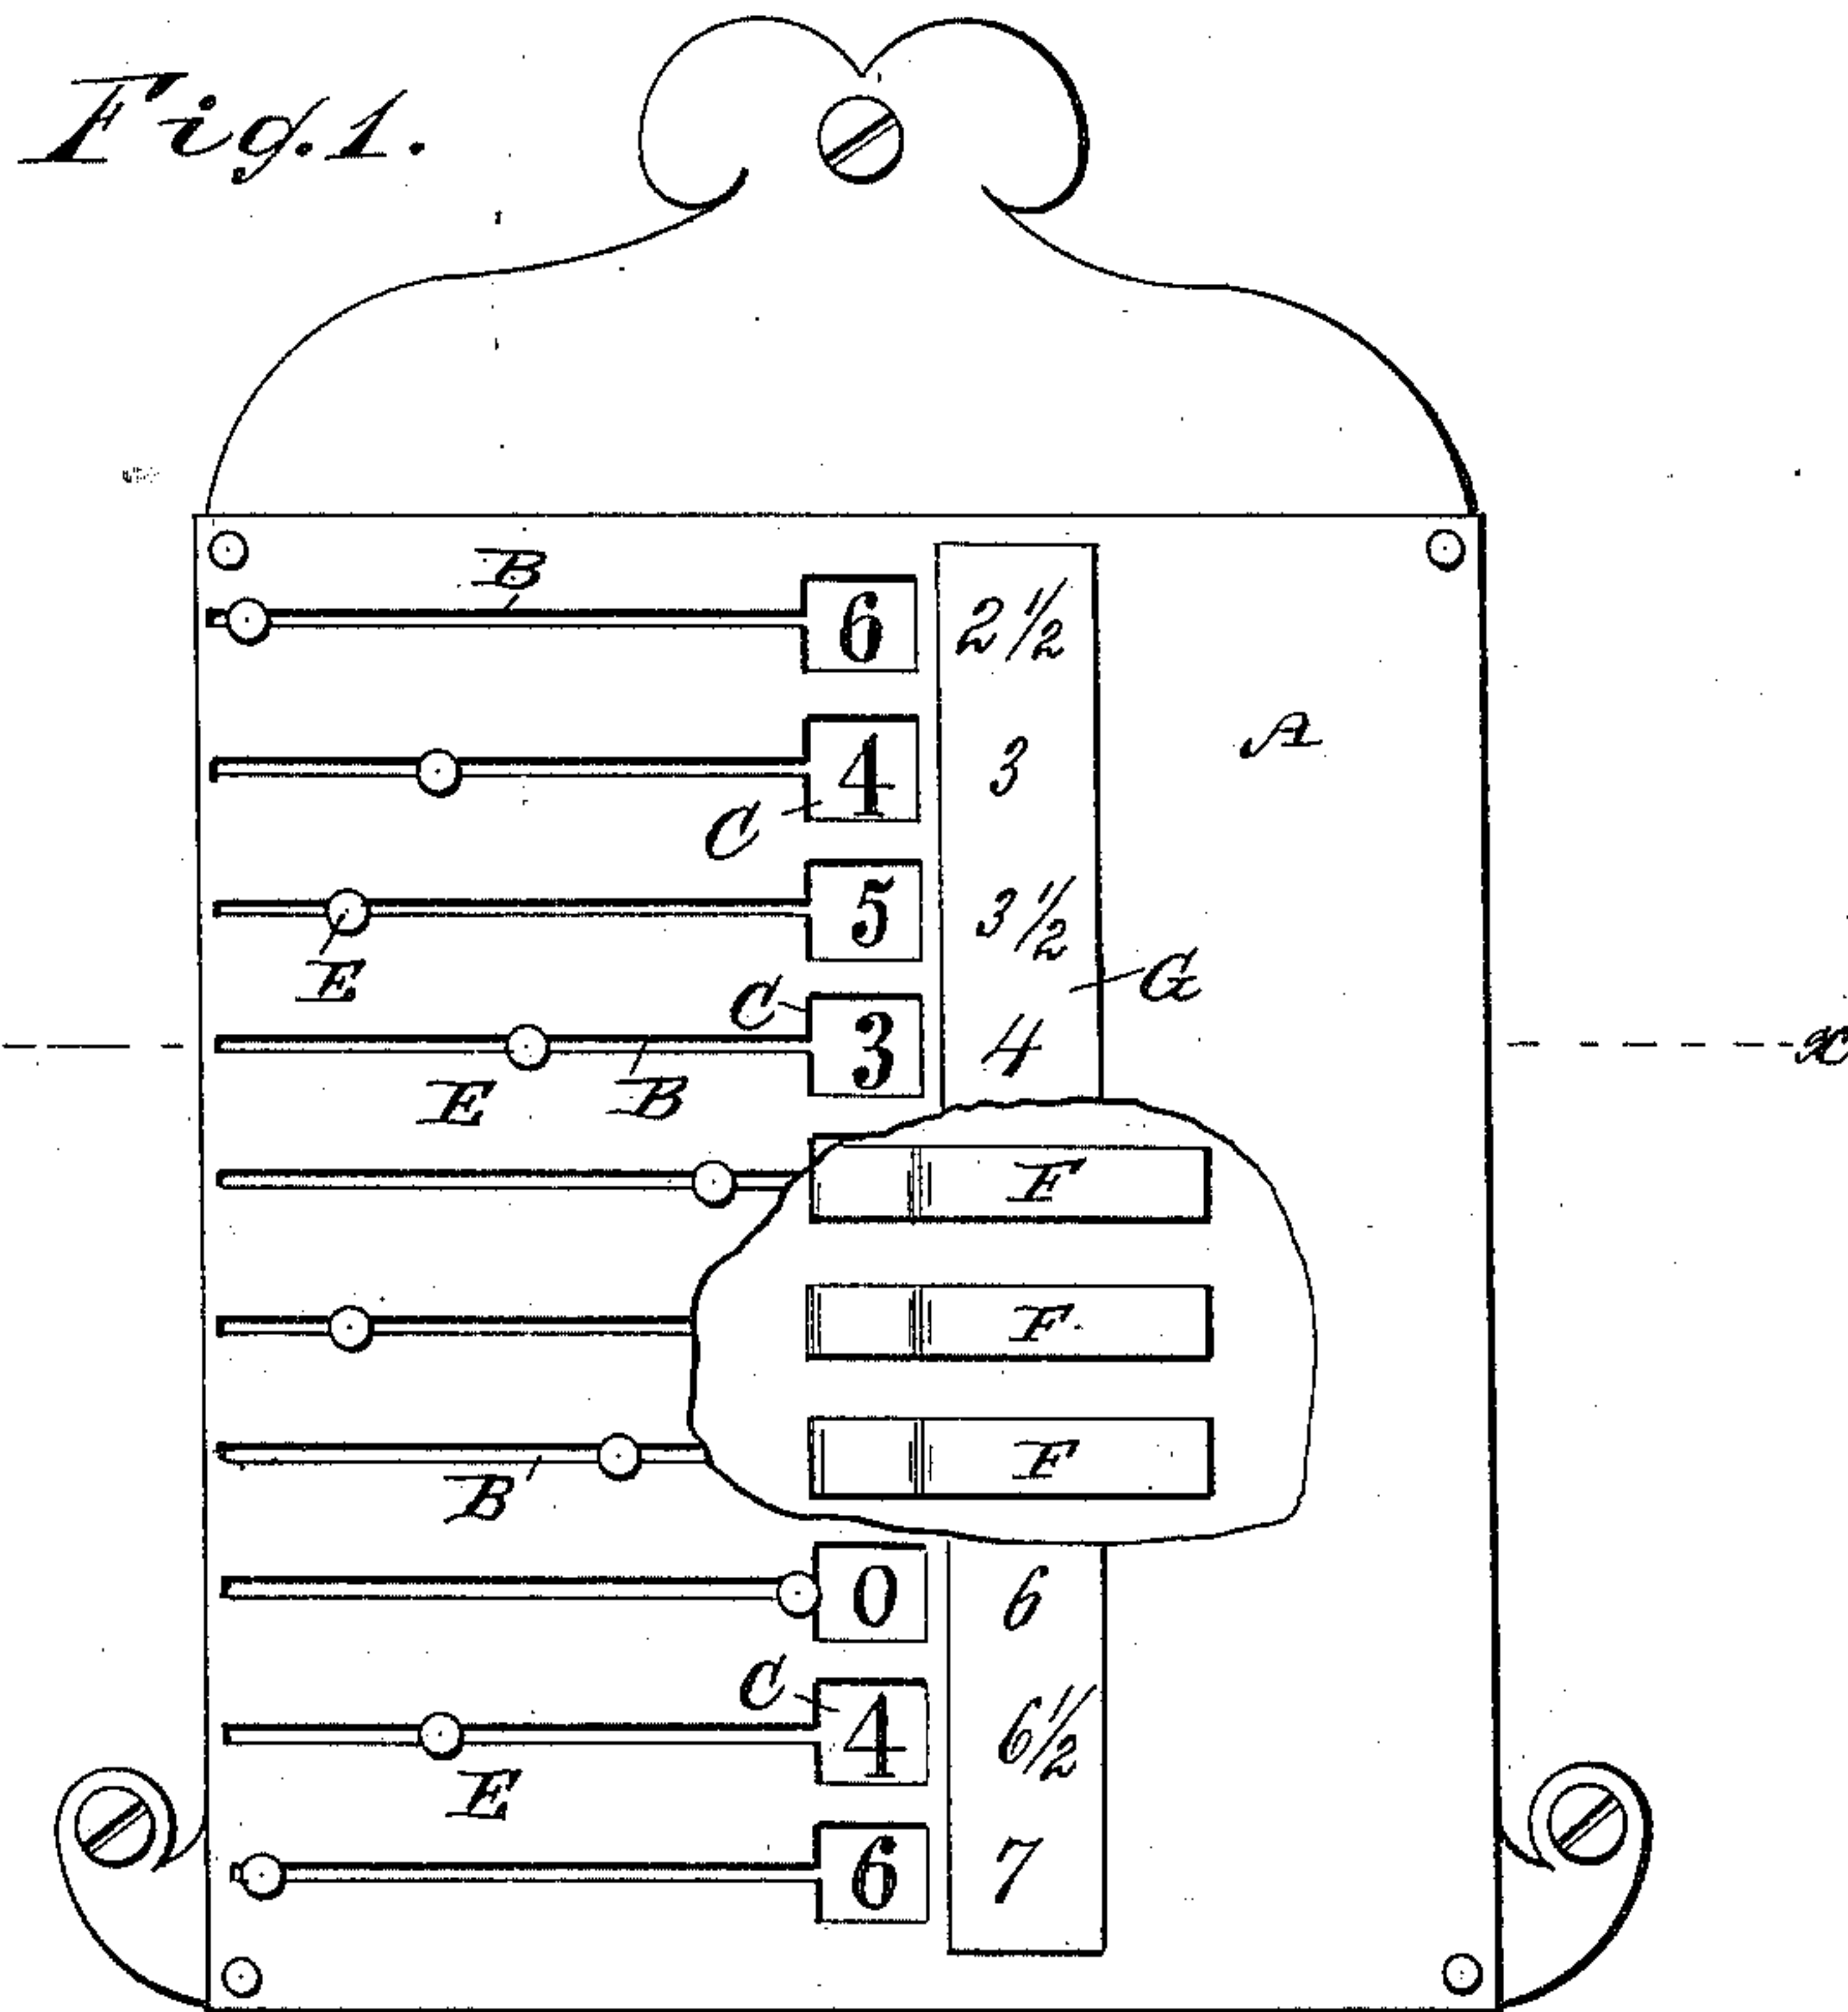 Fig. 1.
B
6 2 1/2
A
4 3
C
5 3 1/2
E
C G
3 4
x
E B
F
F
F
B
0 6
C
4 6 1/2
E
6 7